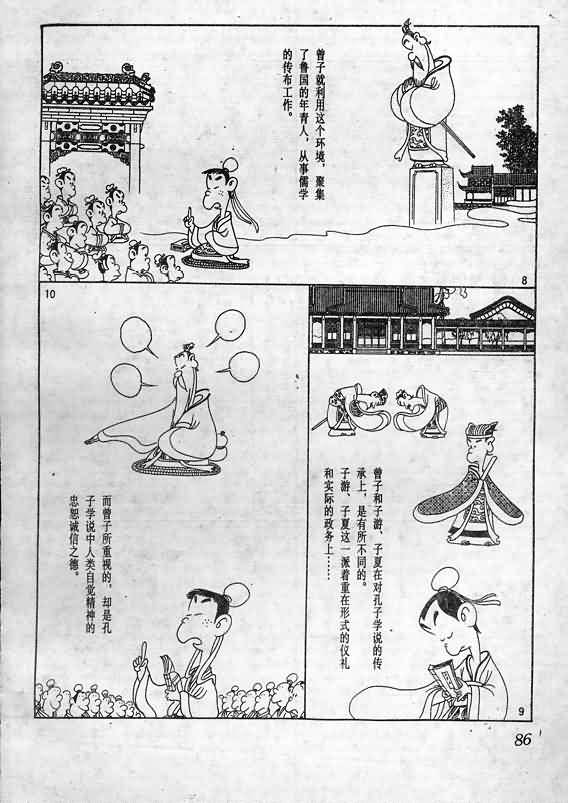 曾子就利用这个环境，聚集
了鲁国的年青人，从事儒学
的传布工作。
8
曾子和子游、子夏在对孔子学说的传
承上，是有所不同的。
子游、子夏这一派着重在形式的仪礼
和实际的政务上……
9
10
而曾子所重视的，却是孔
子学说中人类自觉精神的
忠恕诚信之德。
86